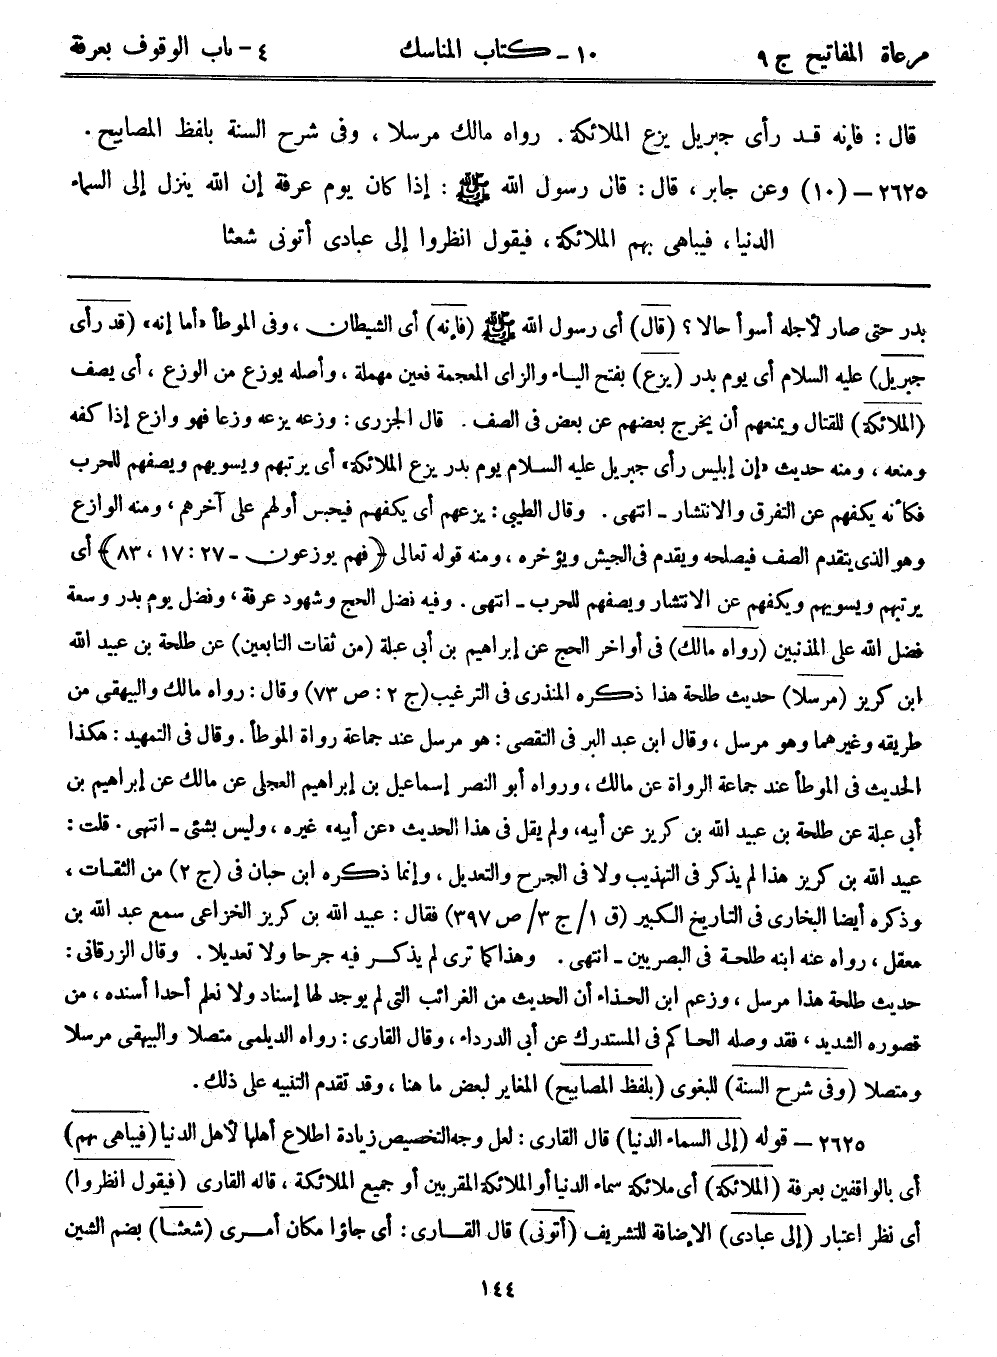 مرعاة المفاتيح ج ٩ ١٠ - كتاب المناسك ٤ - باب الوقوف بعرفة
قال : فإنه قد رأى جبريل يزع الملائكة . رواه مالك مرسلا ، وفى شرح السنة بلفظ المصابيح .
٢٦٢٥ – (١٠) وعن جابر ، قال : قال رسول الله ﷺ : إذا كان يوم عرفة إن الله ينزل إلى السماء
الدنيا ، فيباهى بهم الملائكة ، فيقول انظروا إلى عبادى أتونى شعثا
بدر حتى صار لأجله أسوأ حالا ؟ (قال) أى رسول الله ﷺ (فإنه) أى الشيطان ، وفى الموطأ «أما إنه» (قد رأى
جبريل) عليه السلام أى يوم بدر (يزع) بفتح الياء والزاى المعجمة فعين مهملة ، وأصله يوزع من الوزع ، أى يصف
(الملائكة) للقتال ويمنعهم أن يخرج بعضهم عن بعض فى الصف . قال الجزرى : وزعه يزعه وزعا فهو وازع إذا كفه
ومنعه ، ومنه حديث «إن إبليس رأى جبريل عليه السلام يوم بدر يزع الملائكة» أى يرتبهم ويسويهم ويصفهم للحرب
فكأنه يكفهم عن التفرق والانتشار - انتهى . وقال الطيبى : يزعهم أى يكفهم فيحبس أولهم على آخرهم ، ومنه الوازع
وهو الذى يتقدم الصف فيصلحه ويقدم فى الجيش ويؤخره ، ومنه قوله تعالى ﴿فهم يوزعون - ٢٧ : ١٧ ، ٨٣﴾ أى
يرتبهم ويسويهم ويكفهم عن الانتشار ويصفهم للحرب - انتهى . وفيه فضل الحج وشهود عرفة ، وفضل يوم بدر وسعة
فضل الله على المذنبين (رواه مالك) فى أواخر الحج عن إبراهيم بن أبى عبلة (من ثقات التابعين) عن طلحة بن عبيد الله
ابن كريز (مرسلا) حديث طلحة هذا ذكره المنذرى فى الترغيب (ج ٢ : ص ٧٣) وقال : رواه مالك والبيهقى من
طريقه وغيرهما وهو مرسل ، وقال ابن عبد البر فى التقصى : هو مرسل عند جماعة رواة الموطأ . وقال فى التمهيد : هكذا
الحديث فى الموطأ عند جماعة الرواة عن مالك ، ورواه أبو النصر إسماعيل بن إبراهيم العجلى عن مالك عن إبراهيم بن
أبى عبلة عن طلحة بن عبيد الله بن كريز عن أبيه، ولم يقل فى هذا الحديث «عن أبيه» غيره ، وليس بشئى - انتهى . قلت :
عبيد الله بن كريز هذا لم يذكر فى التهذيب ولا فى الجرح والتعديل ، وإنما ذكره ابن حبان فى (ج ٢) من الثقات ،
وذكره أيضا البخارى فى التاريخ الكبير (ق ١/ ج ٣/ ص ٣٩٧) فقال : عبيد الله بن كريز الخزاعى سمع عبد الله بن
معقل ، رواه عنه ابنه طلحة فى البصريين - انتهى . وهذا كما ترى لم يذكر فيه جرحا ولا تعديلا . وقال الزرقانى :
حديث طلحة هذا مرسل ، وزعم ابن الحذاء أن الحديث من الغرائب التى لم يوجد لها إسناد ولا نعلم أحدا أسنده ، من
قصوره الشديد ، فقد وصله الحاكم فى المستدرك عن أبى الدرداء ، وقال القارى : رواه الديلمى متصلا والبيهقى مرسلا
ومتصلا (وفى شرح السنة) للبغوى (بلفظ المصابيح) المغاير لبعض ما هنا ، وقد تقدم التنبيه على ذلك .
٢٦٢٥ – قوله (إلى السماء الدنيا) قال القارى : لعل وجه التخصيص زيادة اطلاع أهلها لأهل الدنيا (فيباهى بهم)
أى بالواقفين بعرفة (الملائكة) أى ملائكة سماء الدنيا أو الملائكة المقربين أو جميع الملائكة ، قاله القارى (فيقول انظروا)
أى نظر اعتبار (إلى عبادى) الإضافة للتشريف (أتونى) قال القارى : أى جاؤا مكان أمرى (شعثا) بضم الشين
١٤٤